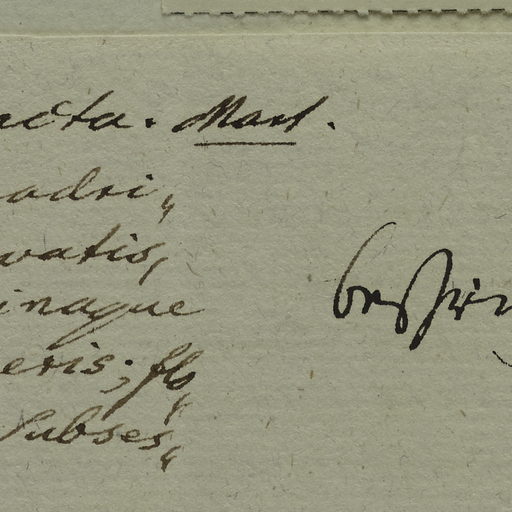 acta. Mart.
adri„
vatis,
inaque
eris; flo„
Subses„